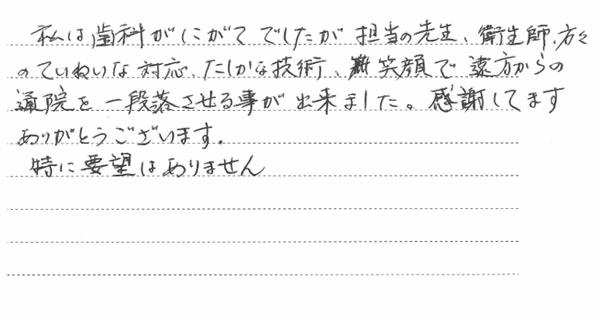 私は歯科がにがてでしたが担当の先生、衛生師、方々
のていねいな対応、たしかな技術、笑顔で遠方からの
通院を一段落させる事が出来ました。感謝してます
ありがとうございます。
特に要望はありません